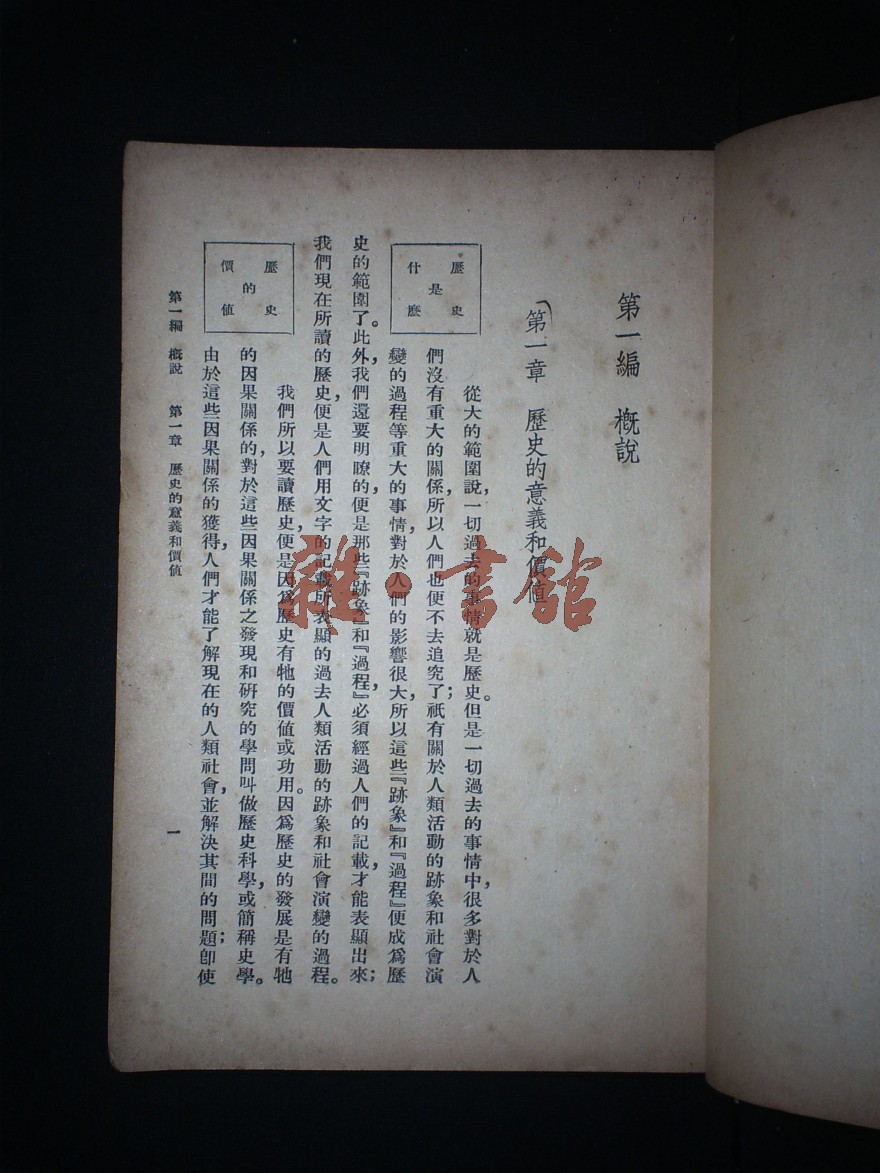 第一編 概說
第一章 歷史的意義和價值
歷史是什麼
從大的範圍說，一切過去的事情就是歷史。但是一切過去的事情中，很多對於人
們沒有重大的關係，所以人們也便不去追究了；祇有關於人類活動的跡象和社會演
變的過程等重大的事情，對於人們的影響很大，所以這些『跡象』和『過程』便成爲歷
史的範圍了。此外，我們還要明瞭的，便是那些『跡象』和『過程』，必須經過人們的記載，才能表顯出來；
我們現在所讀的歷史，便是人們用文字的記載所表顯的過去人類活動的跡象和社會演變的過程。
歷史的價值
我們所以要讀歷史，便是因爲歷史有牠的價值或功用。因爲歷史的發展是有牠
的因果關係的，對於這些因果關係之發現和研究的學問叫做歷史科學，或簡稱史學。
由於這些因果關係的獲得，人們才能了解現在的人類社會，並解決其間的問題；卽使
第一編 概說 第一章 歷史的意義和價值
一
雜·書館